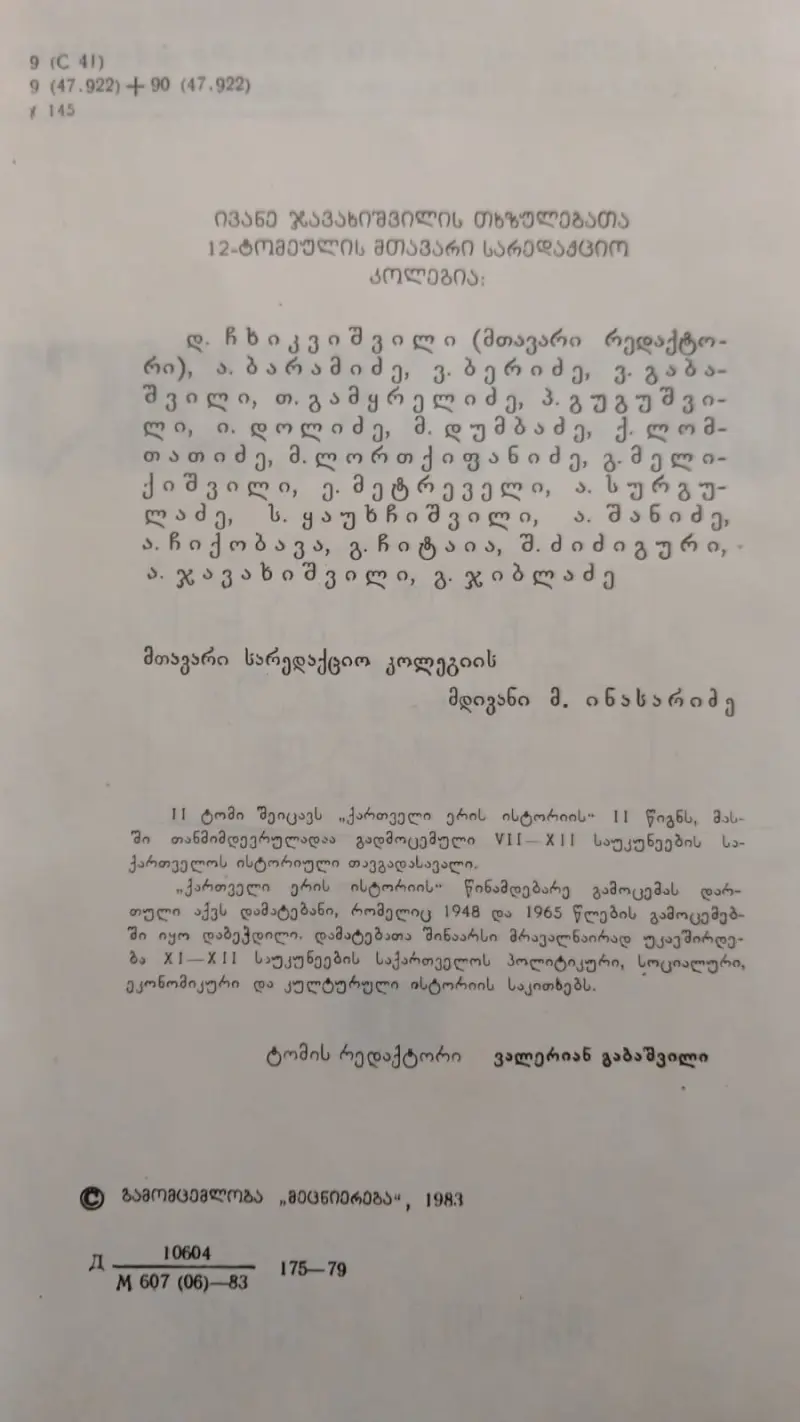 9 (С 41)
9 (47.922) + 90 (47.922)
145
ივანე ჯავახიშვილის თხზულებათა
12-ტომეულის მთავარი სარედაქციო
კოლეგია:
დ. ჩხიკვიშვილი (მთავარი რედაქტო-
რი), ა. ბარამიძე, ვ. ბერიძე, ვ. გაბა-
შვილი, თ. გამყრელიძე, პ. გუგუშვი-
ლი, ი. დოლიძე, მ. დუმბაძე, ქ. ლომ-
თათიძე, მ. ლორთქიფანიძე, გ. მელი-
ქიშვილი, ე. მეტრეველი, ა. სურგუ-
ლაძე, ს. ყაუხჩიშვილი, ა. შანიძე,
ა. ჩიქობავა, გ. ჩიტაია, შ. ძიძიგური,
ა. ჯავახიშვილი, გ. ჯიბლაძე
მთავარი სარედაქციო კოლეგიის
მდივანი მ. ინასარიძე
II ტომი შეიცავს „ქართველი ერის ისტორიის“ II წიგნს, მას-
ში თანმიმდევრულადაა გადმოცემული VII—XII საუკუნეების სა-
ქართველოს ისტორიული თავგადასავალი.
„ქართველი ერის ისტორიის“ წინამდებარე გამოცემას დარ-
თული აქვს დამატებანი, რომელიც 1948 და 1965 წლების გამოცემებ-
ში იყო დაბეჭდილი. დამატებათა შინაარსი მრავალნაირად უკავშირდე-
ბა XI—XII საუკუნეების საქართველოს პოლიტიკური, სოციალური,
ეკონომიკური და კულტურული ისტორიის საკითხებს.
ტომის რედაქტორი ვალერიან გაბაშვილი
© გამომცემლობა „მეცნიერება“, 1983
Д 10604
М 607 (06)—83 175—79